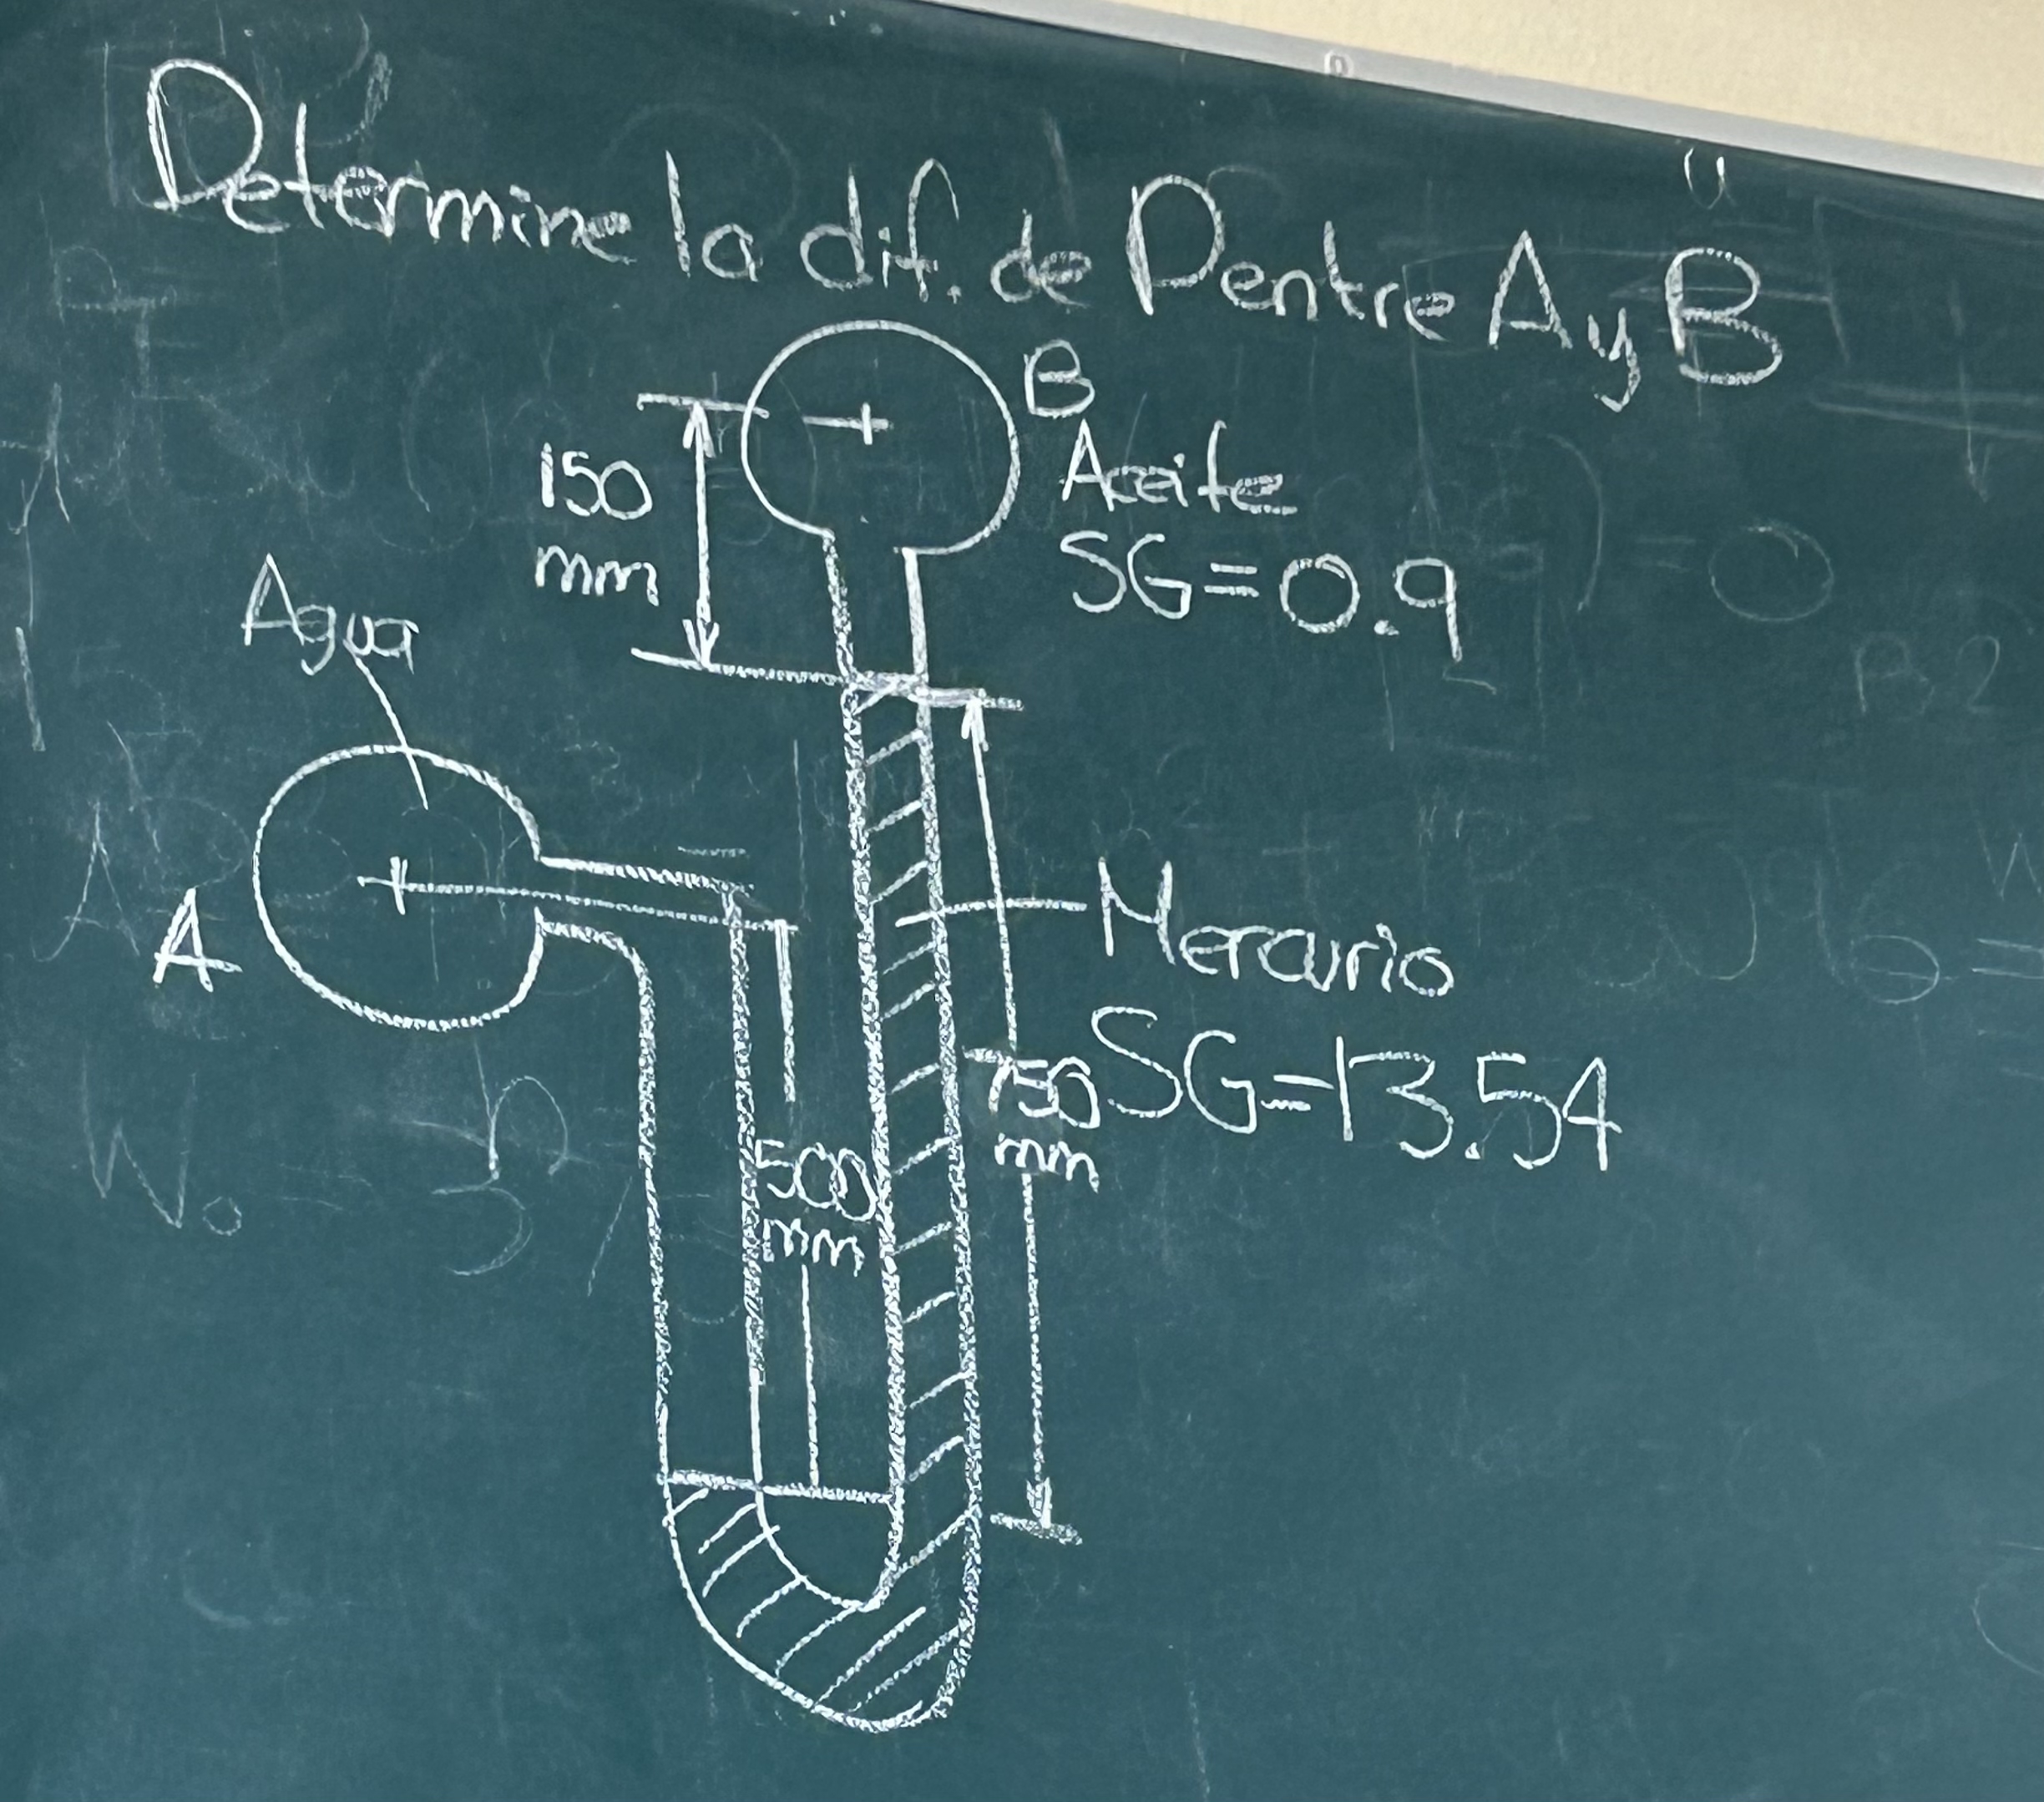 Determine la dif. de P entre A y B
B
150
mm
Aceite
SG=0.9
Agua
A
Mercurio
SG=13.54
750
mm
500
mm